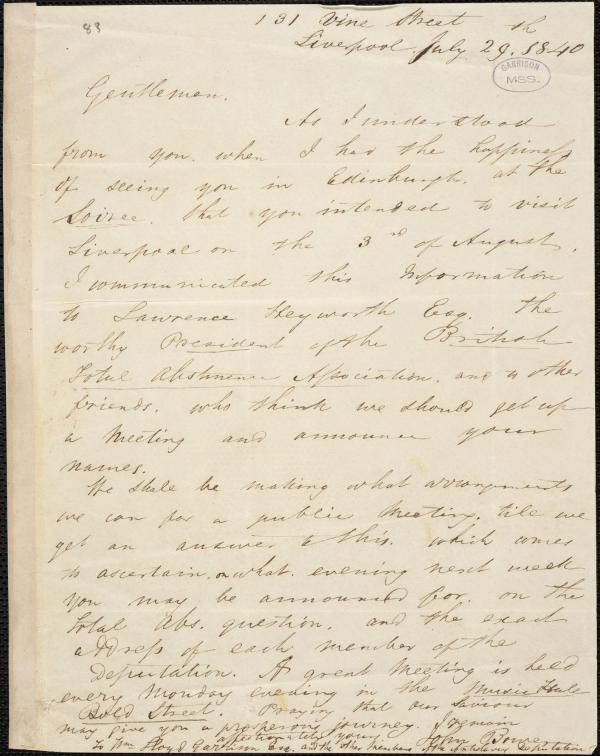 83
131 Vine Street
Liverpool July 29th. 1840
GARRISON
MSS.
Gentlemen.
As I understood
from you. when I had the happiness
of seeing you in Edinburgh. at the
Soiree. that you intended to visit
Liverpool on the 3rd of August.
I communicated this Information
to Lawrence Heyworth Esq. the
worthy President of the British
Total Abstinence Association. and to other
friends. who think we should get up
a Meeting and announce your
names.
We shall be making what arrangements
we can for a public Meeting. till we
get an answer to this. which comes
to ascertain. on what. evening next week
you may be announced for. on the
Total Abs. question. and the exact
address of each member of the
Deputation. A great Meeting is held
every Monday evening in the Music Hall
Bold Street. Praying that our Saviour
may give you a prosperous journey. I remain
affectionately yours. John
To Wm Lloyd Garrison Esq. and the other members of the antislavery Deputation